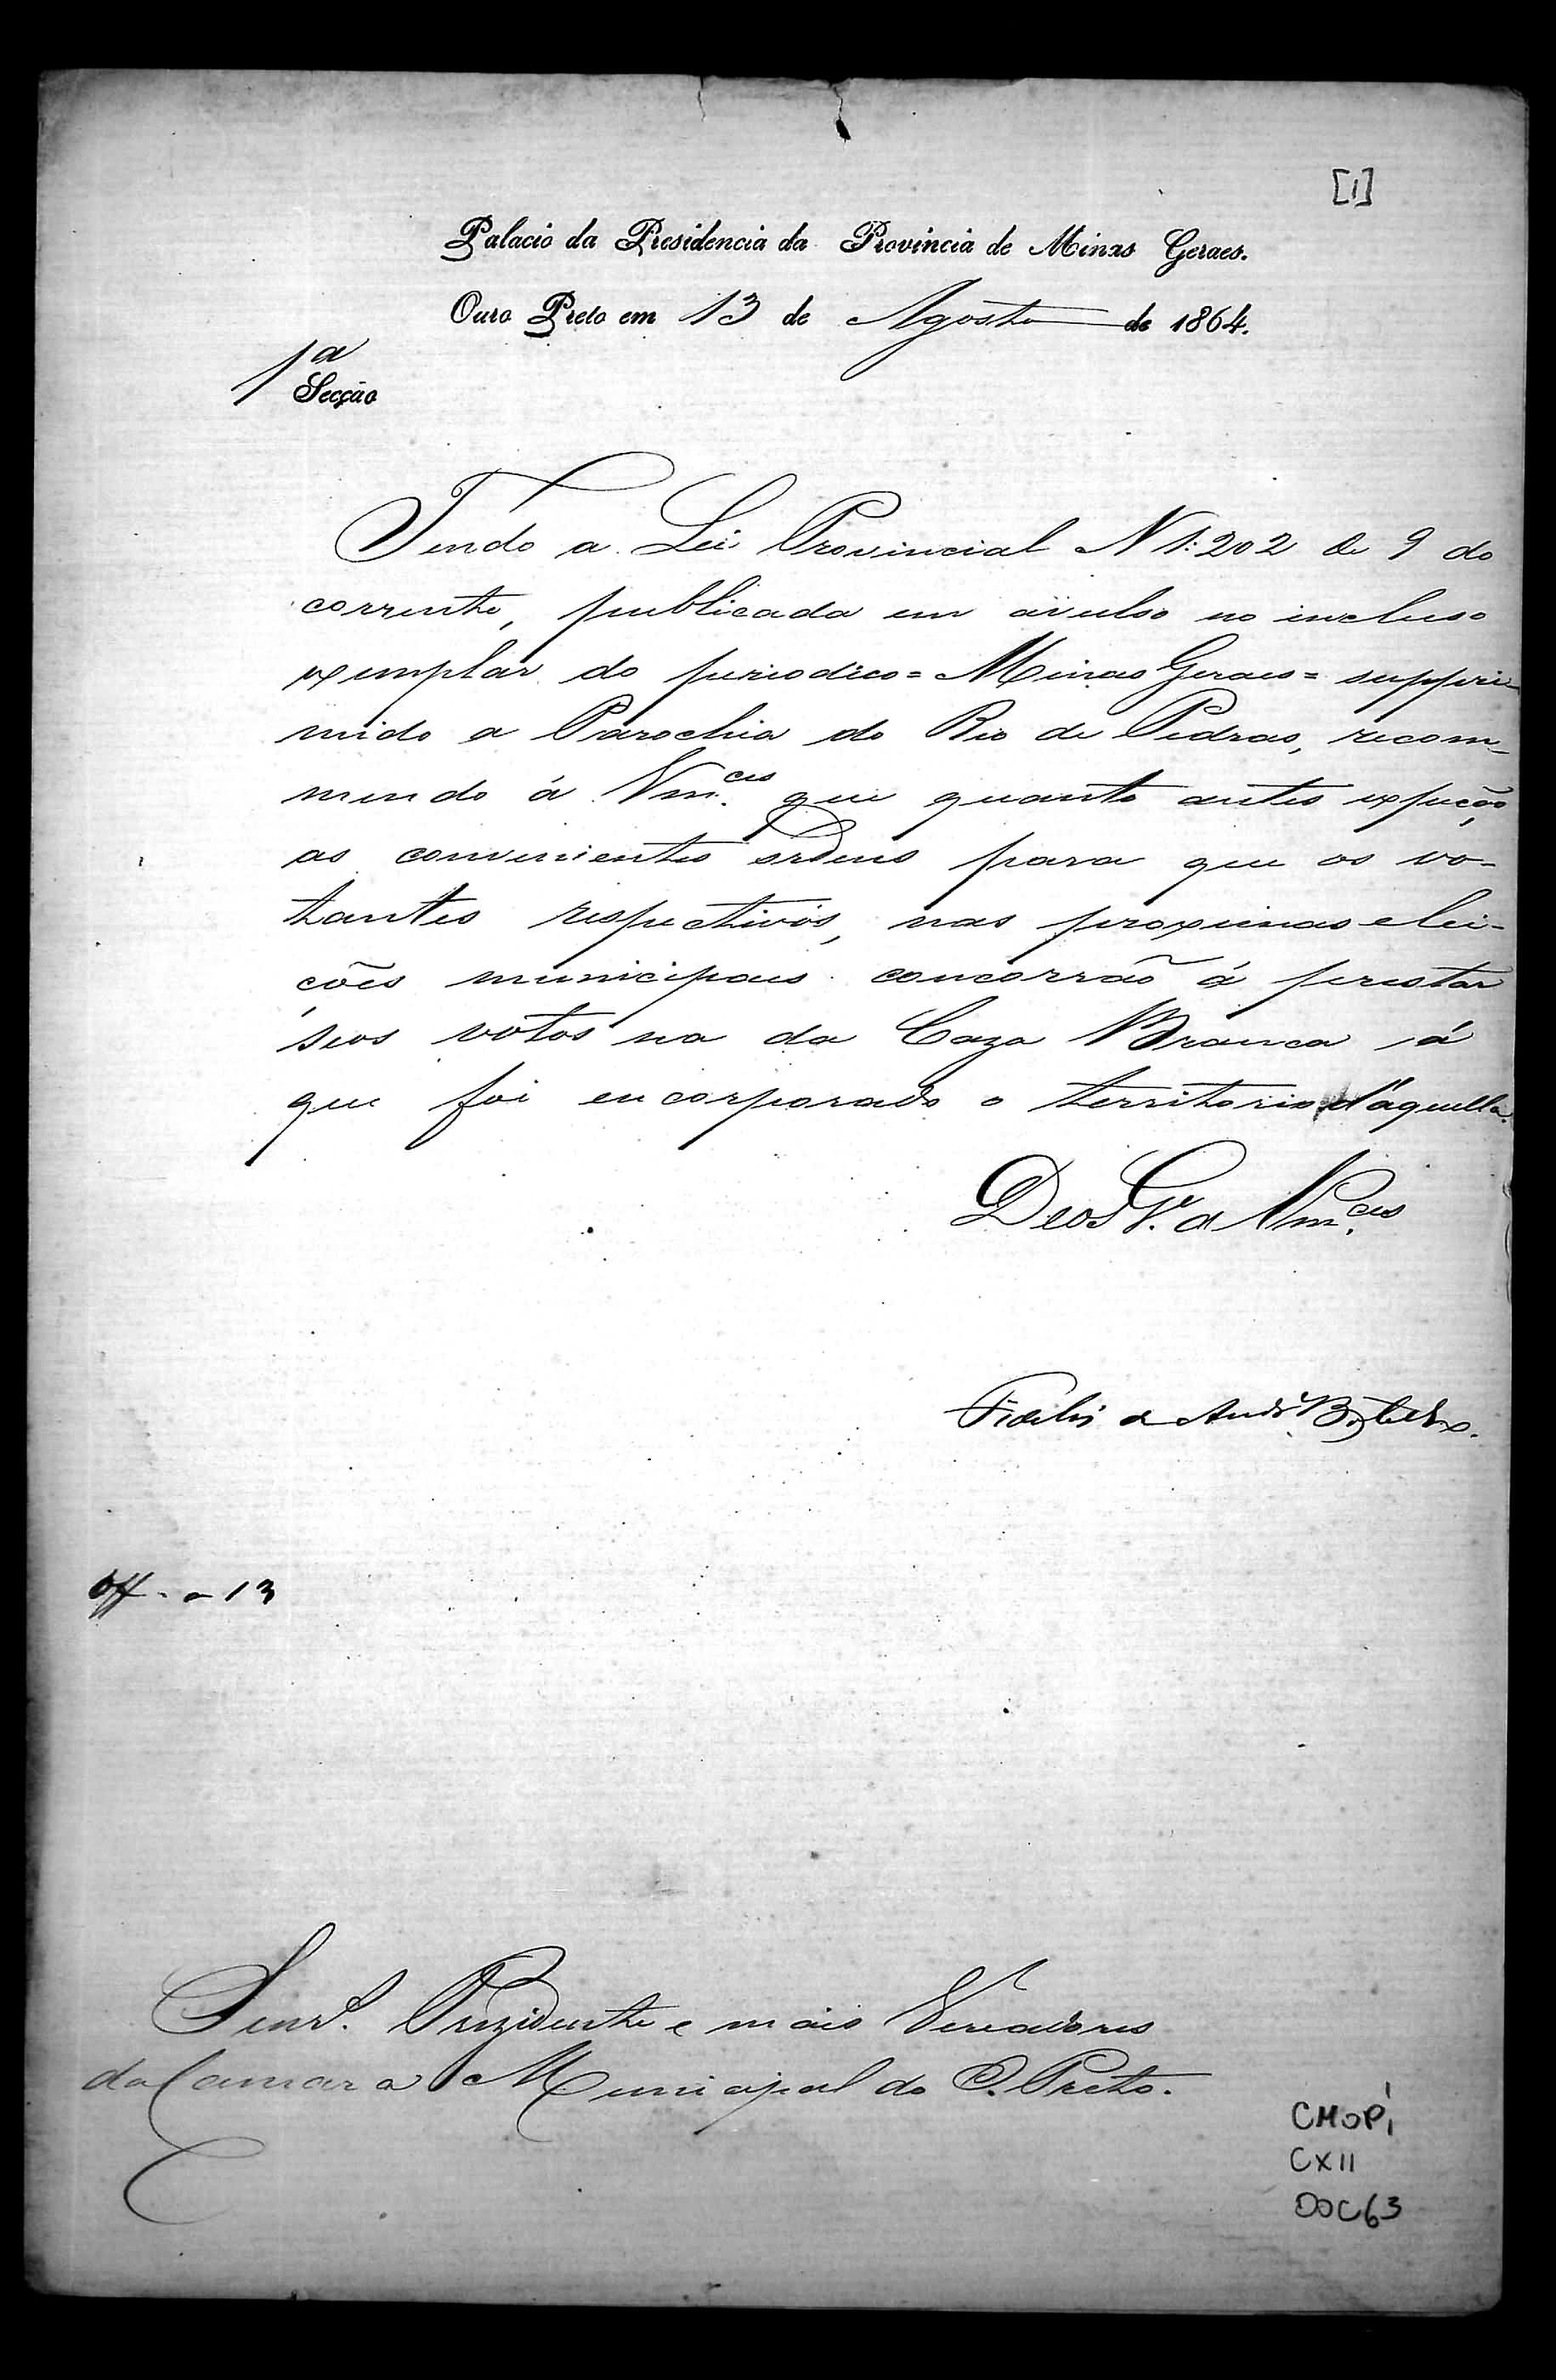 [1]
Palacio da Presidencia da Provincia de Minas Geraes.
Ouro Preto em 13 de Agosto de 1864.
1ª
Secção
Tendo a Lei Provincial N 1:202 de 9 do
corrente, publicada em avulso no incluso
exemplar do periodico = Minas Geraes = suppri-
mido a Parochia do Rio de Pedras, recom-
mendo á Vm.ces que quanto antes expeção
as convenientes ordens para que os vo-
tantes respectivos, nas proximas elei-
ções municipaes concorrão á prestar
seos votos na da Caza Branca á
que foi encorporado o territorio d'aquella.
Deos G.e a Vm.ces
Fidelis de Andr.e Botelho.
Off. a 13
Senr.s Prezidente e mais Vereadores
da Camara Municipal do O. Preto.
CMOP
CXII
DOC63